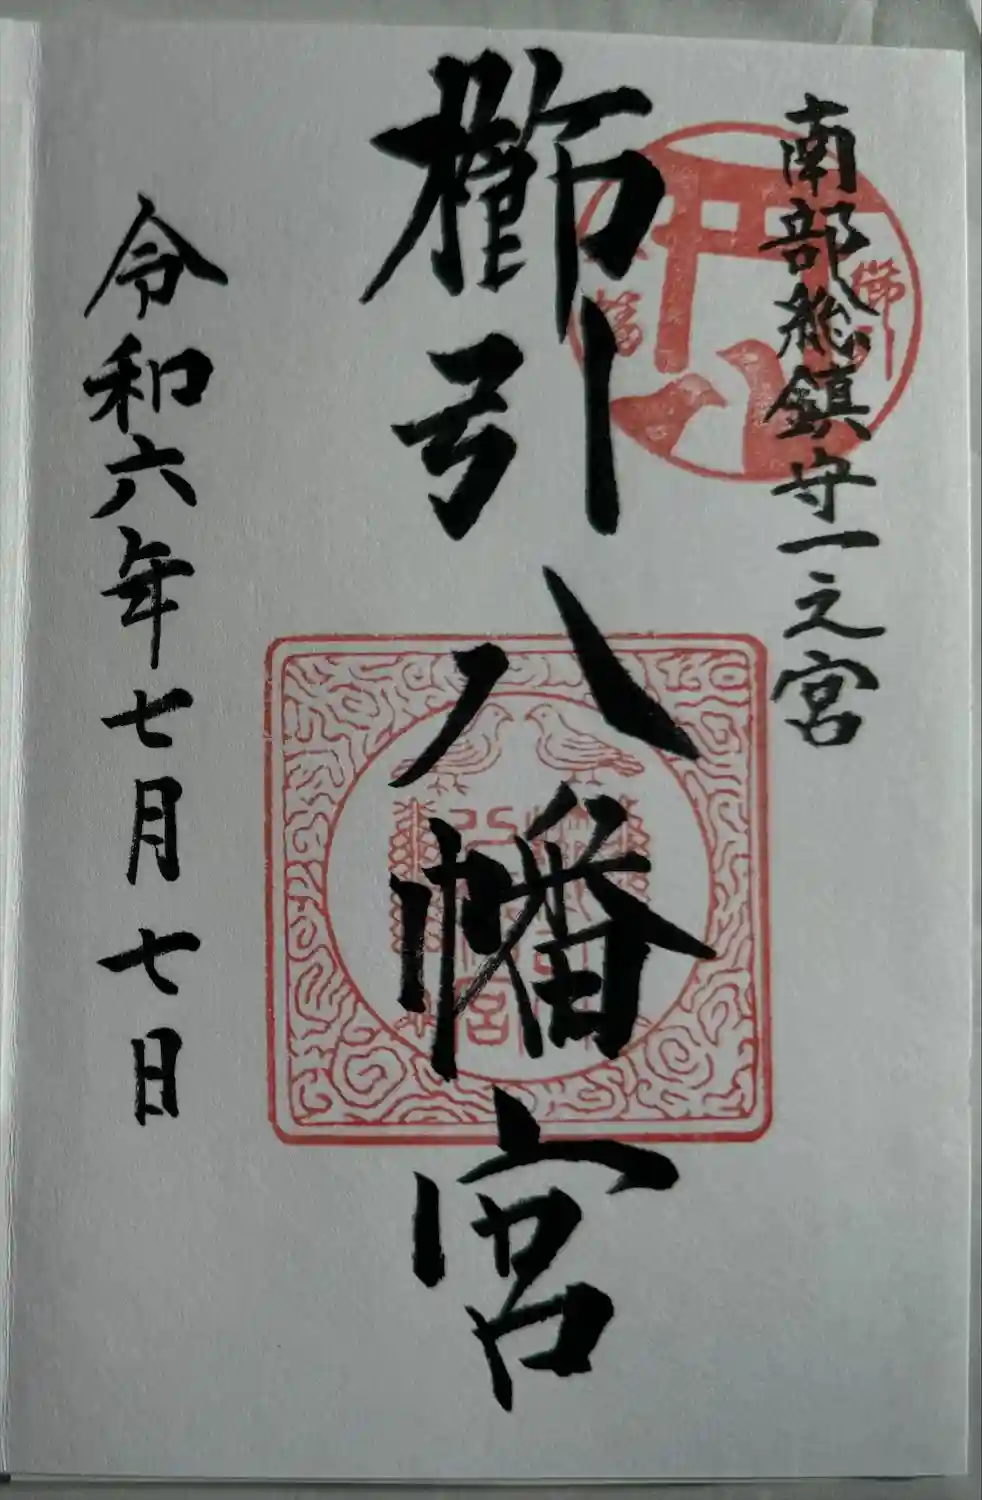 南部総鎮守一之宮
櫛引八幡宮
令和六年七月七日